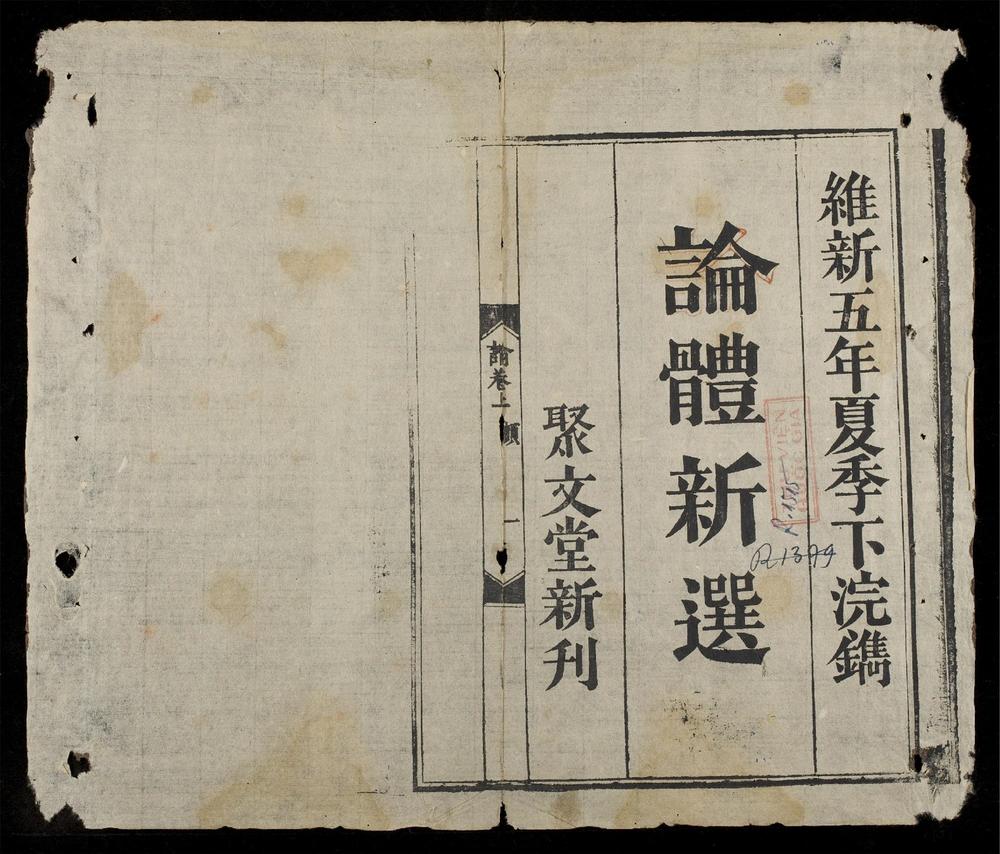 維新五年夏季下浣鐫
論體新選
聚文堂新刊
論卷上
一
R.1399